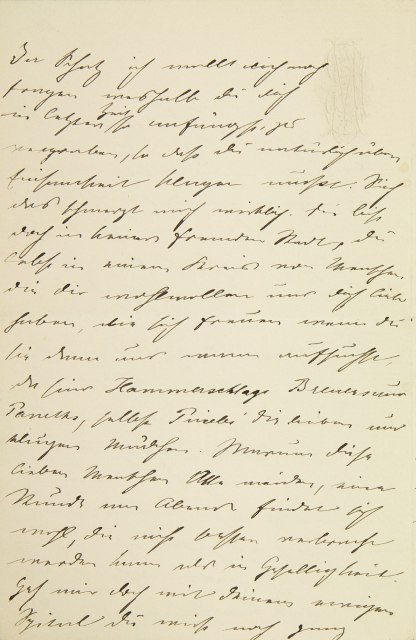 Du Schatz ich wollte dich noch
fragen weshalb du dich
in letzter Zeit so anfängst zu
vergraben, so daß du natürlich über
Einsamkeit klagen mußt. Sieh
das schmerzt mich wirklich. Du bist
doch in keiner fremden Stadt, du
lebst in einem Kreis von Menschen,
die dir wohlwollen und dich lieb
haben, die sich freuen wenn du
sie dann und wann aufsuchst,
da sind Hammerschlags Breuers und
Paneths, selbst die lieben und
klugen Mädchen. Warum diese
lieben Menschen Alle meiden, eine
Stunde am Abend findet sich
wohl, die nicht besser verbracht
werden kann als in Geselligkeit.
Geh mir doch mit deinem ewigen
Spital du wirst noch ganz